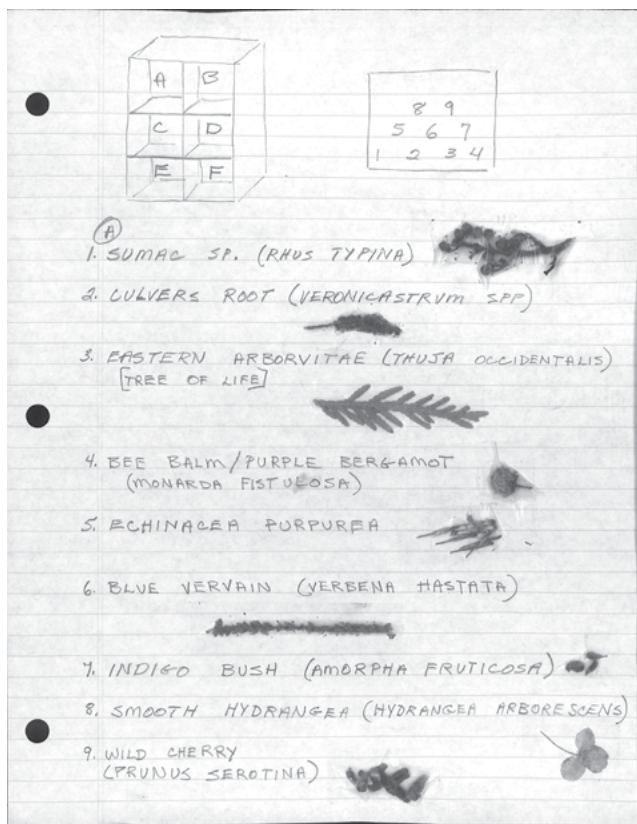 A B
C D
E F
8 9
5 6 7
1 2 3 4
A
1. SUMAC SP. (RHUS TYPINA)
2. CULVERS ROOT (VERONICASTRUM SPP)
3. EASTERN ARBORVITAE (THUJA OCCIDENTALIS)
[TREE OF LIFE]
4. BEE BALM/PURPLE BERGAMOT
(MONARDA FISTULOSA)
5. ECHINACEA PURPUREA
6. BLUE VERVAIN (VERBENA HASTATA)
7. INDIGO BUSH (AMORPHA FRUTICOSA)
8. SMOOTH HYDRANGEA (HYDRANGEA ARBORESCENS)
9. WILD CHERRY
(PRUNUS SEROTINA)